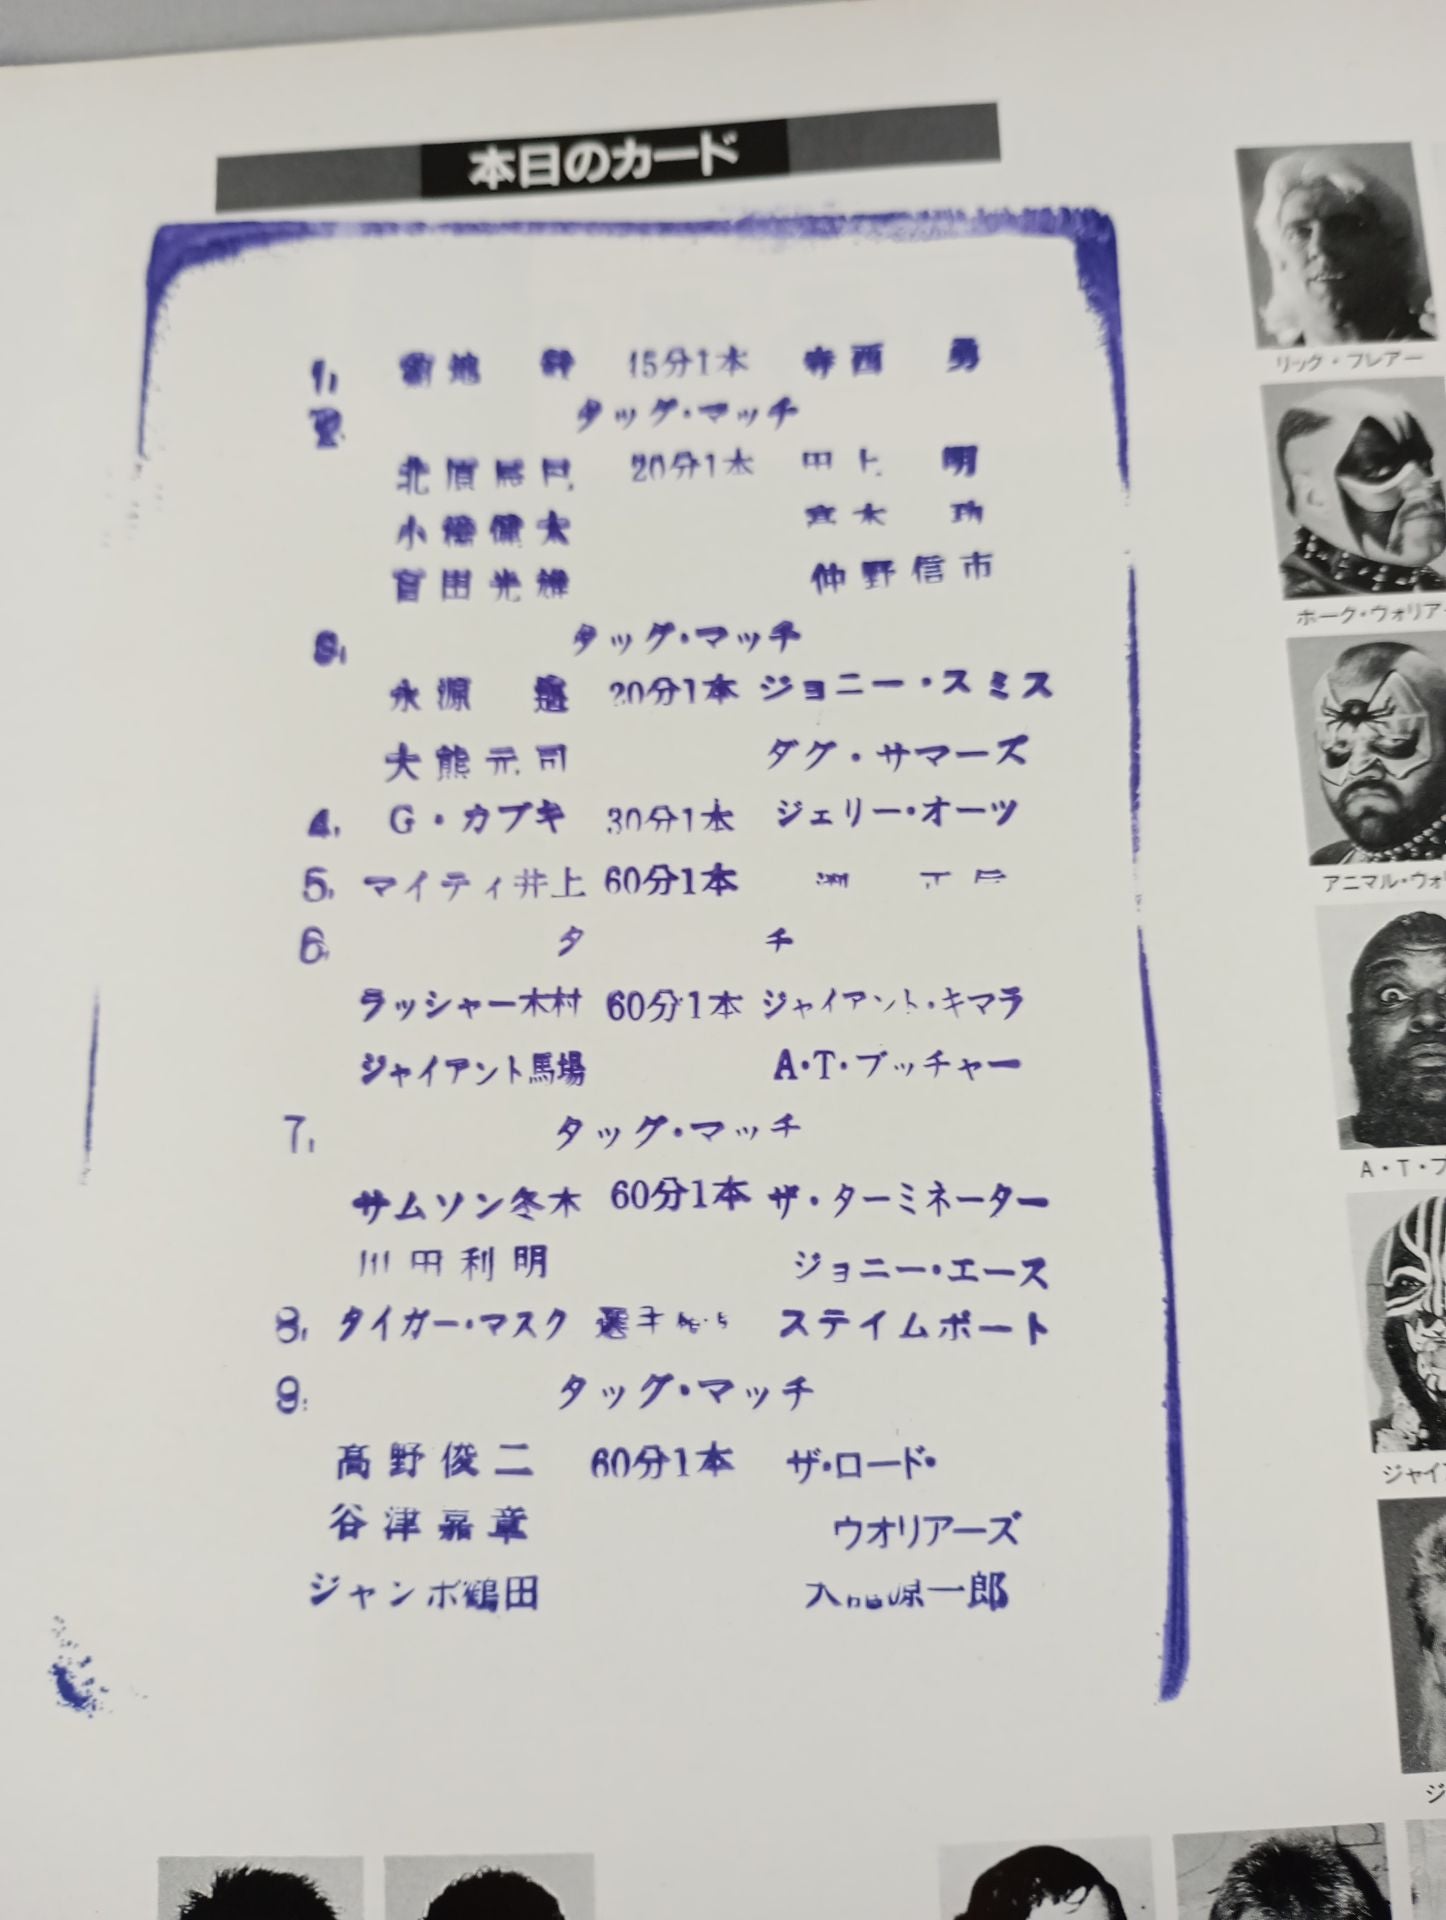 本日のカード
1. 菊地 15分1本 寺西 勇
2. タッグ・マッチ
北原 20分1本 田上 明
小橋健太 高木 功
百田光雄 仲野信市
3. タッグ・マッチ
永源 遙 20分1本 ジョニー・スミス
大熊元司 ダグ・サマーズ
4. G・カブキ 30分1本 ジェリー・オーツ
5. マイティ井上 60分1本 渕 正信
6. タ チ
ラッシャー木村 60分1本 ジャイアント・キマラ
ジャイアント馬場 A・T・ブッチャー
7. タッグ・マッチ
サムソン冬木 60分1本 ザ・ターミネーター
川田利明 ジョニー・エース
8. タイガー・マスク 選手 ステイムボート
9. タッグ・マッチ
高野俊二 60分1本 ザ・ロード・
谷津嘉章 ウオリアーズ
ジャンボ鶴田 天龍源一郎
リック・フレアー
ホーク・ウォリア
アニマル・ウォ
A・T・ブ
ジャイ
ジ